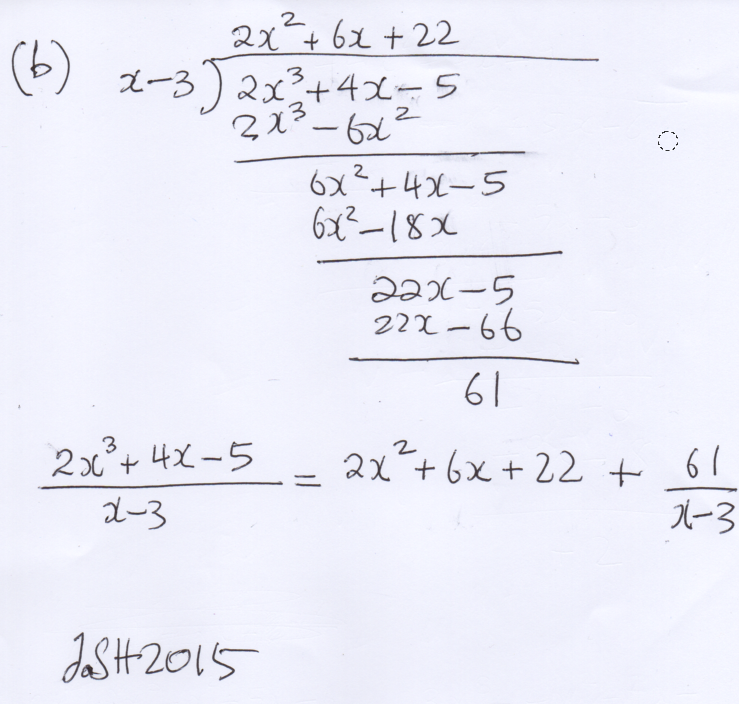 (b)
2x² + 6x + 22
x-3 ) 2x³ + 4x - 5
2x³ - 6x²
6x² + 4x - 5
6x² - 18x
22x - 5
22x - 66
61
2x³ + 4x - 5 / x-3 = 2x² + 6x + 22 + 61 / x-3
JSH2015